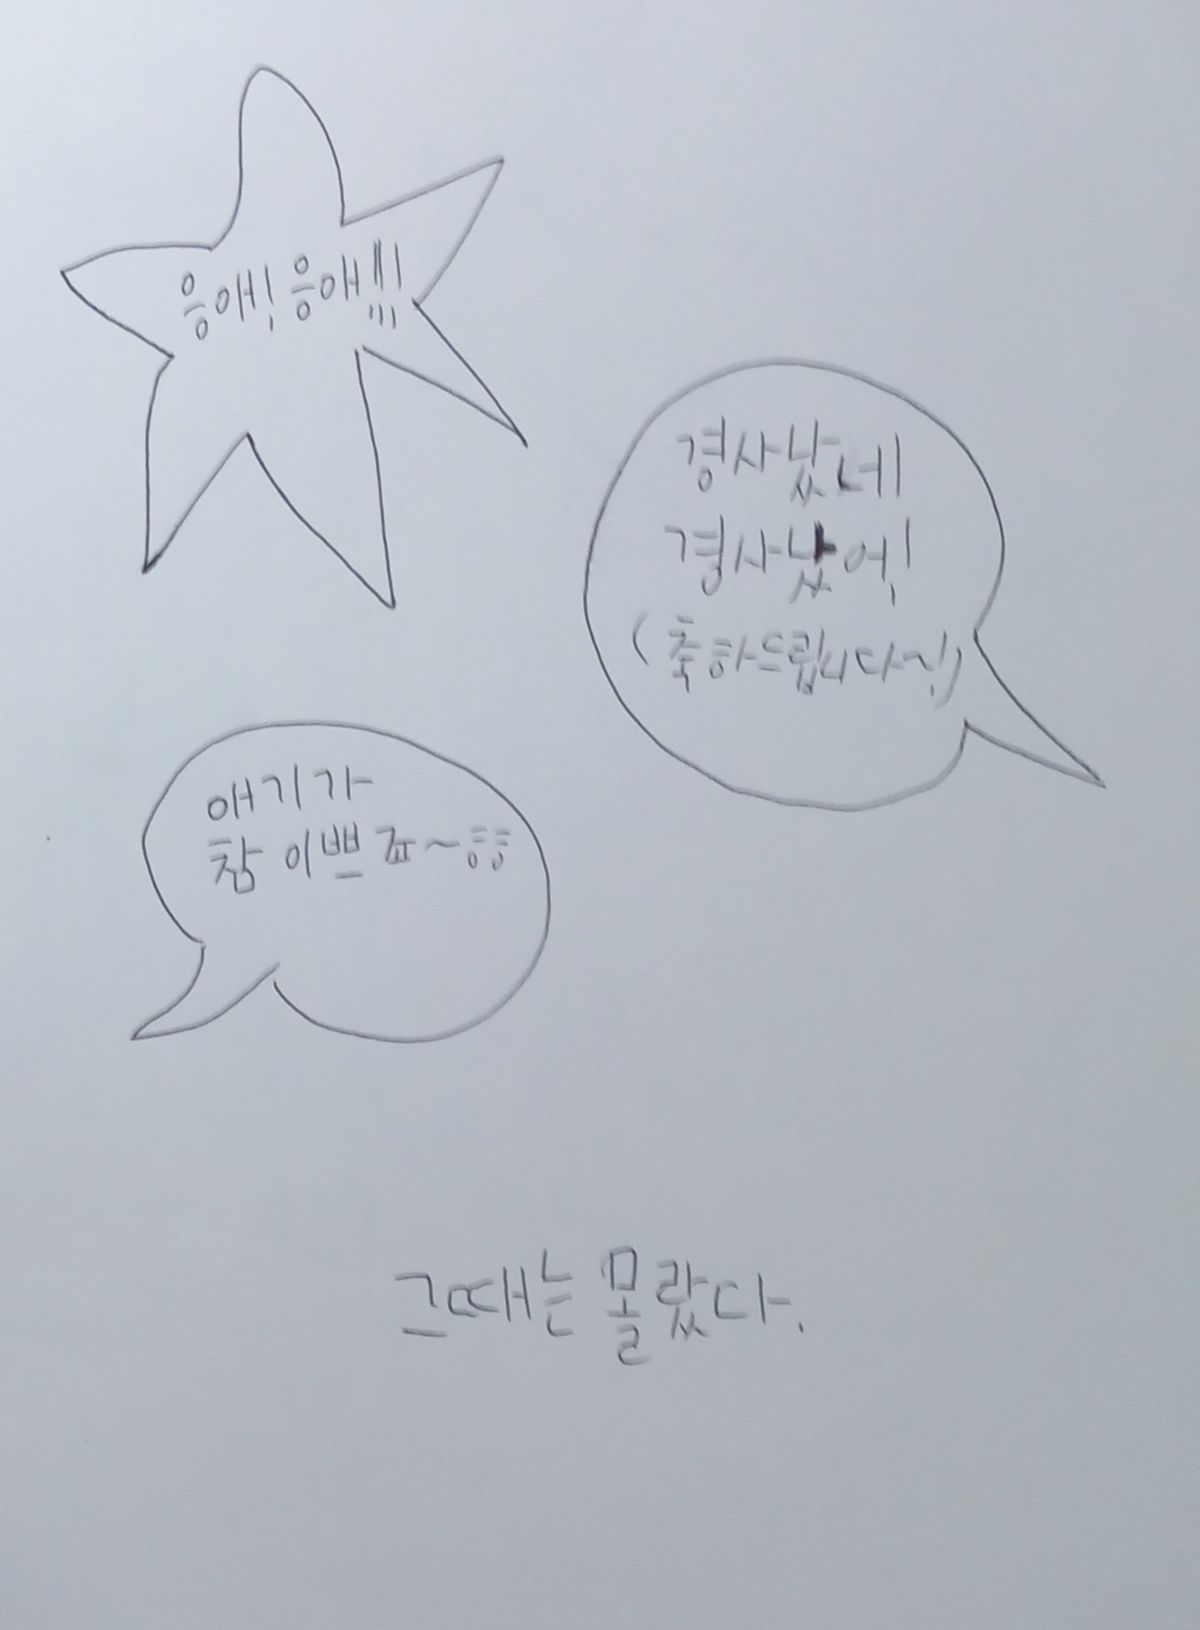 응애! 응애!!!
경사났네
경사났어!
(축하드립니다~!!)
애기가
참 이쁘죠~ㅎㅎ
그때는 몰랐다.